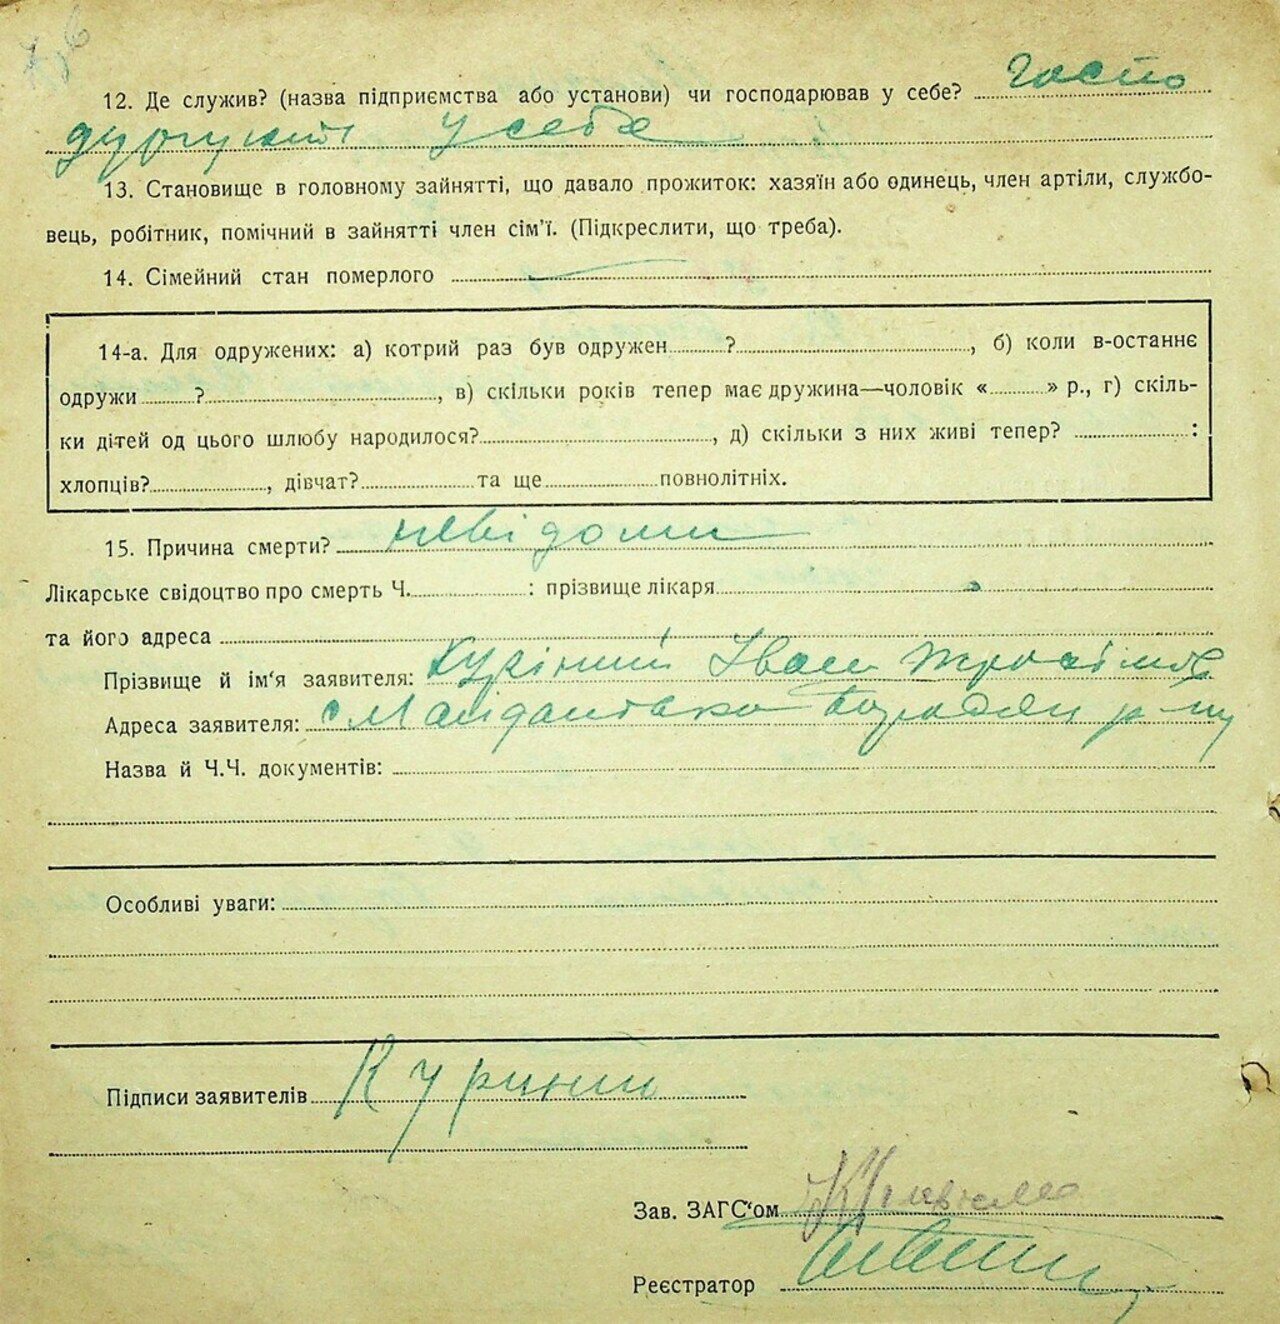 12. Де служив? (назва підприємства або установи) чи господарював у себе? госпо
у себе
13. Становище в головному зайнятті, що давало прожиток: хазяїн або одинець, член артілі, службо-
вець, робітник, помічний в зайнятті член сім'ї. (Підкреслити, що треба).
14. Сімейний стан померлого
14-а. Для одружених: а) котрий раз був одружен ? , б) коли в-останнє
одружи ? , в) скільки років тепер має дружина—чоловік « » р., г) скіль-
ки дітей од цього шлюбу народилося? , д) скільки з них живі тепер? :
хлопців? , дівчат? та ще повнолітніх.
15. Причина смерти? невідоми
Лікарське свідоцтво про смерть Ч. : прізвище лікаря
та його адреса
Прізвище й ім'я заявителя: Курінний Іван
Адреса заявителя: с Майданівка р-ну
Назва й Ч.Ч. документів:
Особливі уваги:
Підписи заявителів Куринии
Зав. ЗАГС'ом
Реєстратор